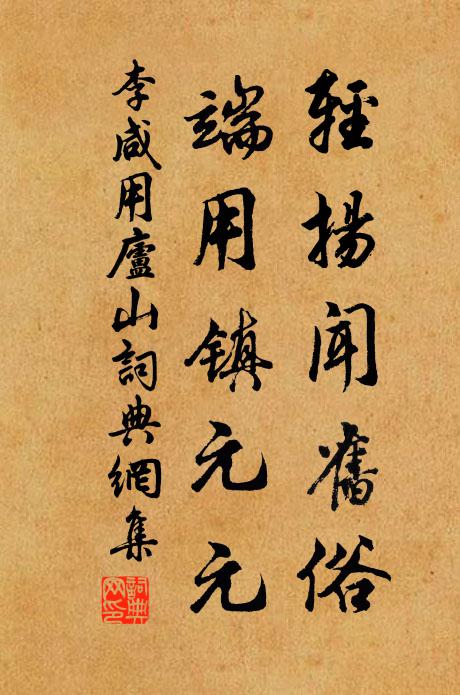 輕揚聞舊俗
端用鎮元元
李咸用廬山詞典網集
詞典網印